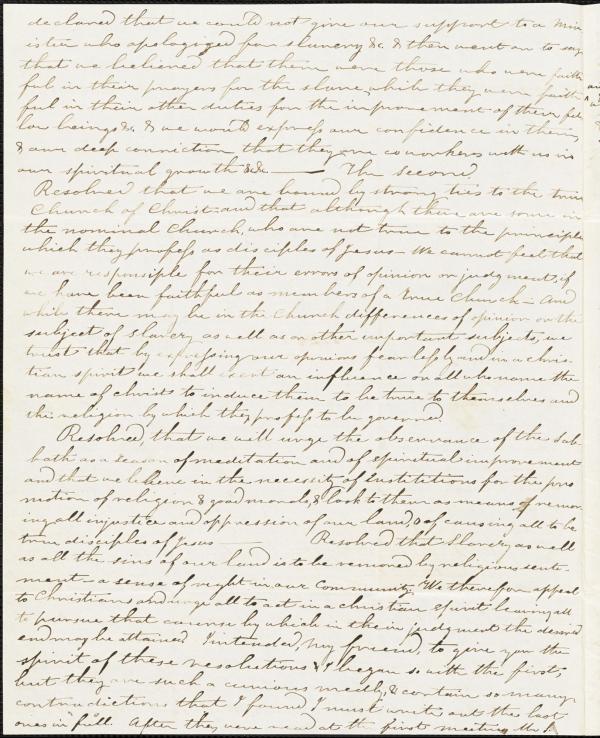 declared that we could not give our support to a min
ister who apologized for slavery &c. & then went on to say
that we believed that there were those who were faith
ful in their prayers for the slave while they were faith
ful in their other duties for the improvement of their fel
low beings &c. & we would express our confidence in them,
& our deep conviction that they are coworkers with us in
our spiritual growth &c — The second,
Resolved that we are bound by strong ties to the true
Church of Christ and that although there are some in
the nominal Church, who are not true to the principles
which they profess as disciples of Jesus — We cannot feel that
we are responsible for their errors of opinion or judgment, if
we have been faithful as members of a true Church — And
while there may be in the Church differences of opinion on the
subject of Slavery as well as on other important subjects, we
trust that by expressing our opinions fearlessly and in a chris-
tian spirit we shall exert an influence on all who name the
name of Christ to induce them to be true to themselves and
the religion by which they profess to be governed.
Resolved, that we will urge the observance of the Sab
bath as a season of meditation and of spiritual improvement
and that we believe in the necessity of Institutions for the pro
motion of religion & good morals, & look to them as means of remov
ing all injustice and oppression of our land, & of causing all to be
true disciples of Jesus — Resolved that Slavery as well
as all the sins of our land is to be removed by religious senti-
ment — a sense of right in our Community. We therefore appeal
to Christians and urge all to act in a christian spirit leaving all
to pursue that course by which in their judgment the desired
end may be attained. I intended, my friend, to give you the
spirit of these resolutions & I began so with the first,
but they are such a curious medly, & contain so many
contradictions that I found I must write out the last
ones in "full." After they were read at the first meeting Mr.